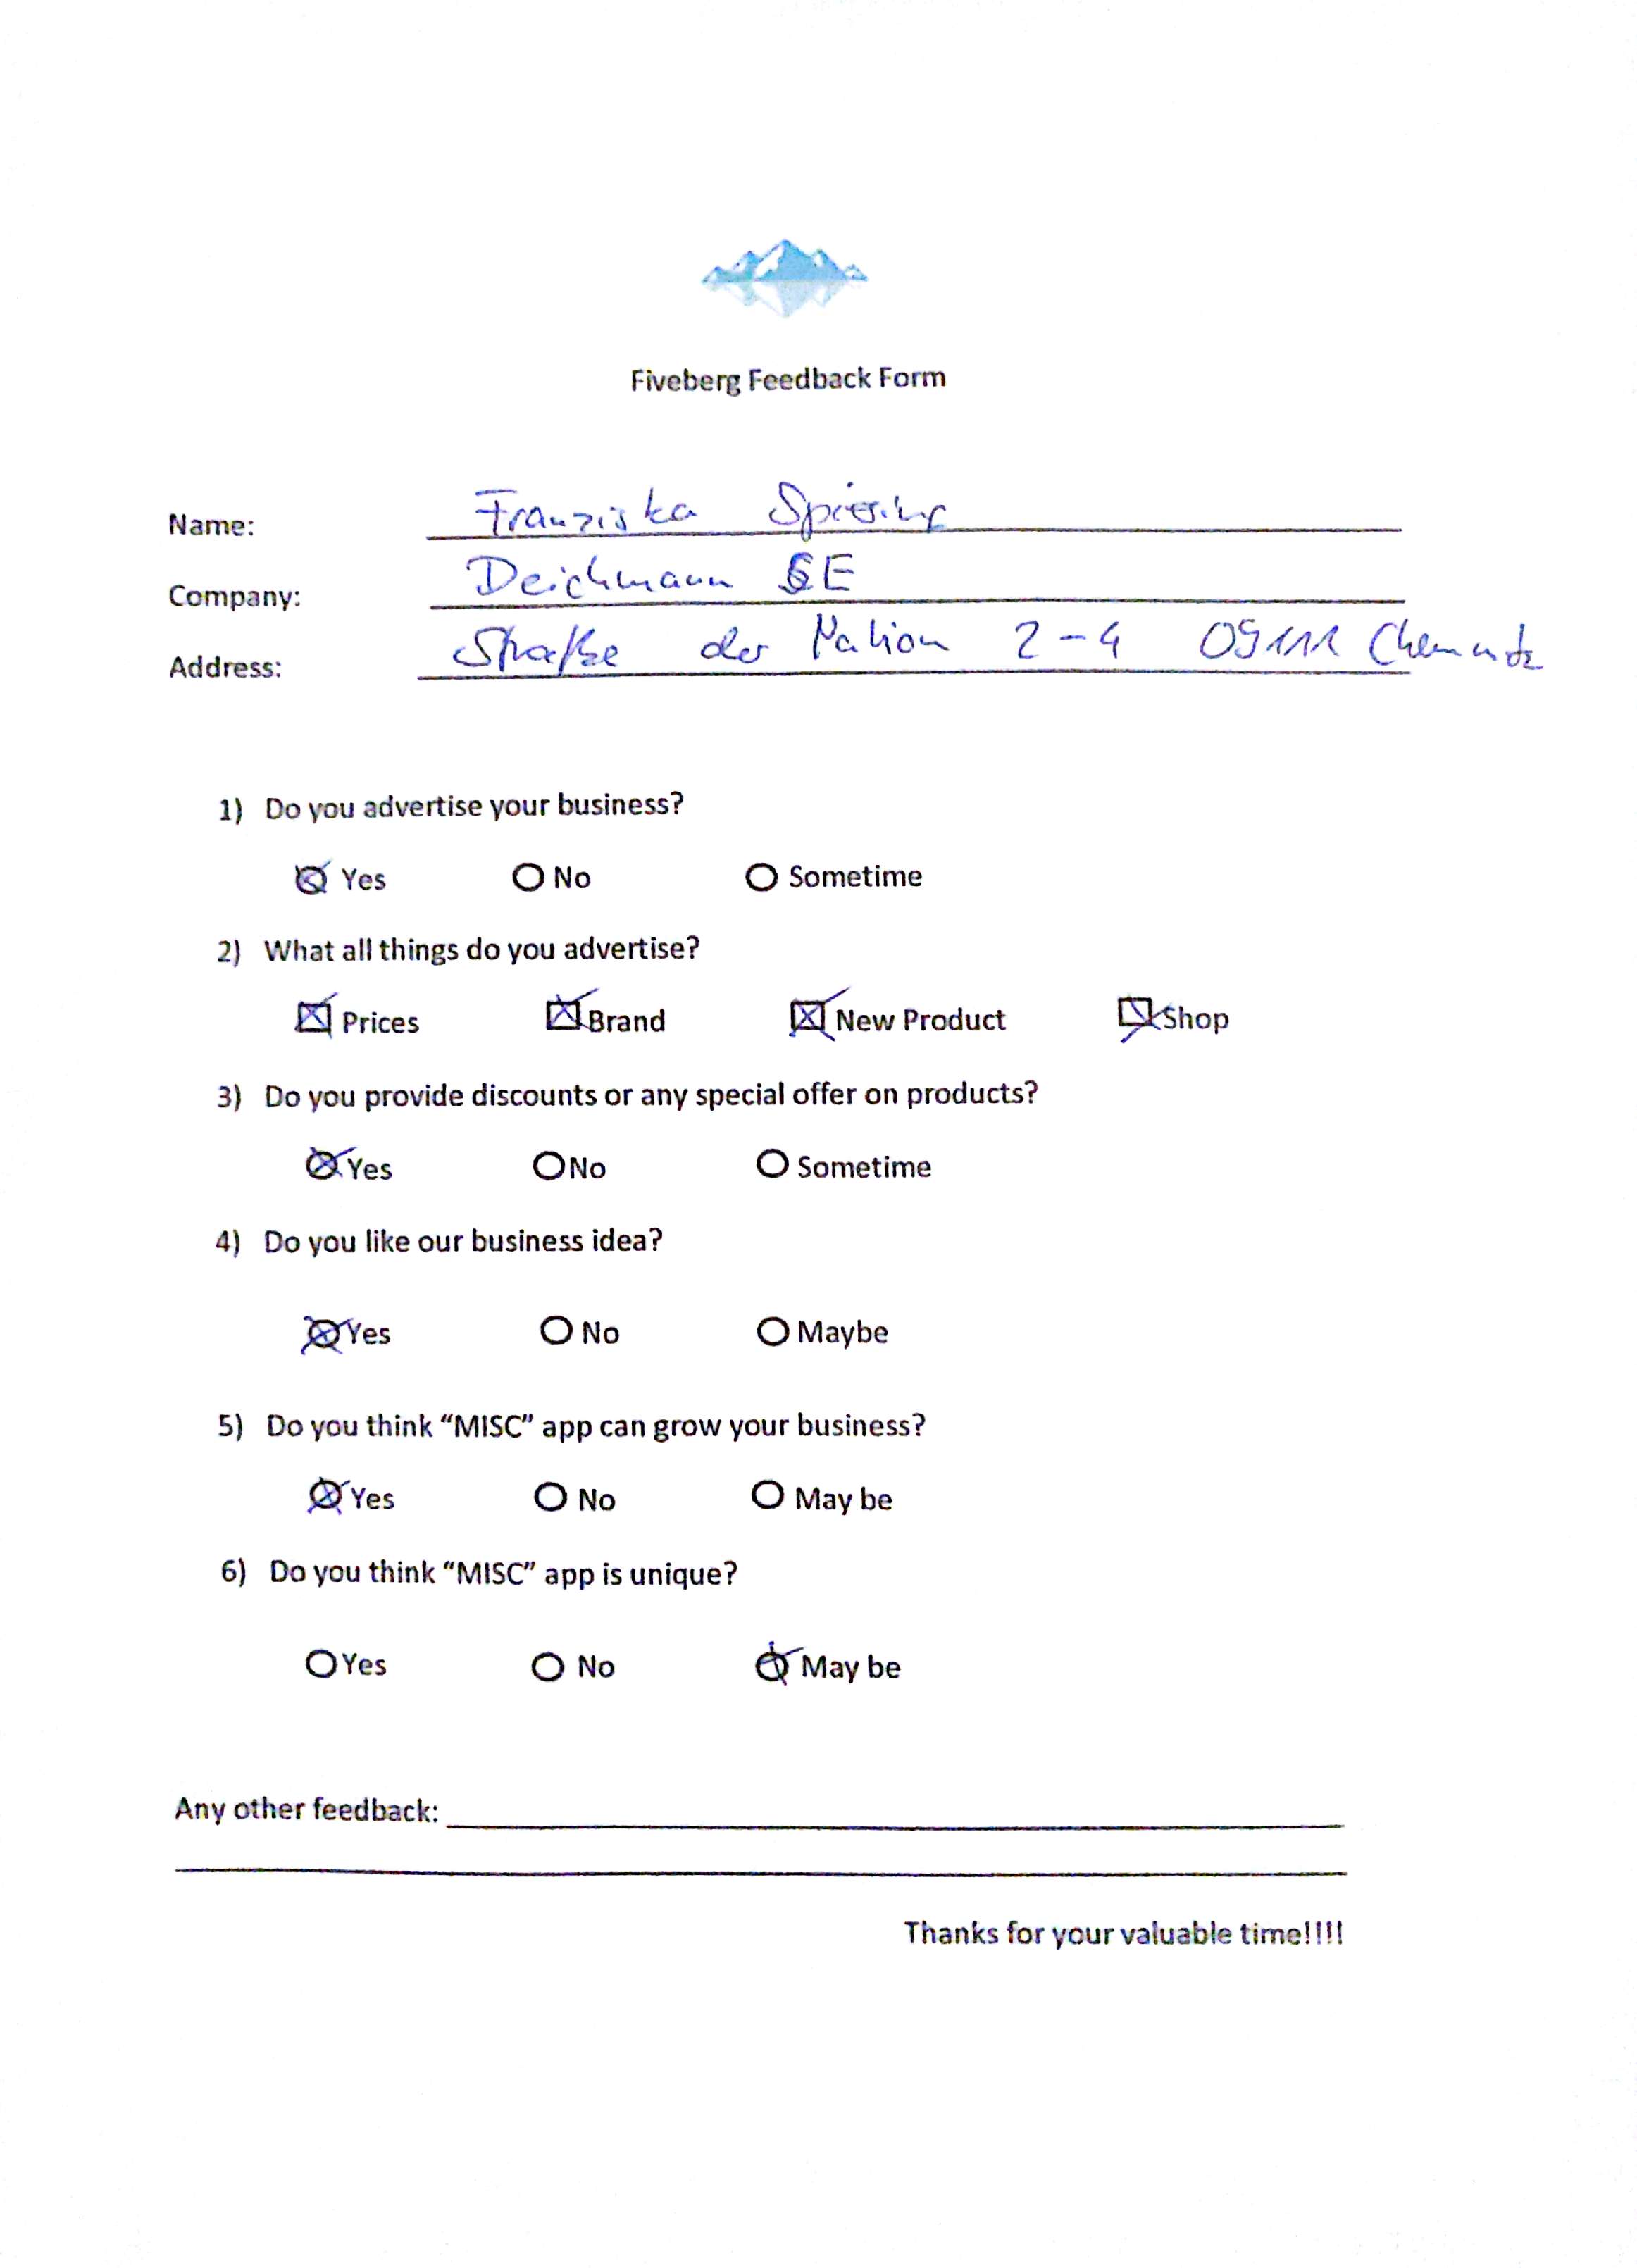 Fiveberg Feedback Form
Name: Franziska
Company: Deichmann SE
Address: Straße der Nation 2-4 09111 Chemnitz
1) Do you advertise your business?
Yes No Sometime
2) What all things do you advertise?
Prices Brand New Product Shop
3) Do you provide discounts or any special offer on products?
Yes No Sometime
4) Do you like our business idea?
Yes No Maybe
5) Do you think “MISC” app can grow your business?
Yes No May be
6) Do you think “MISC” app is unique?
Yes No May be
Any other feedback:
Thanks for your valuable time!!!!